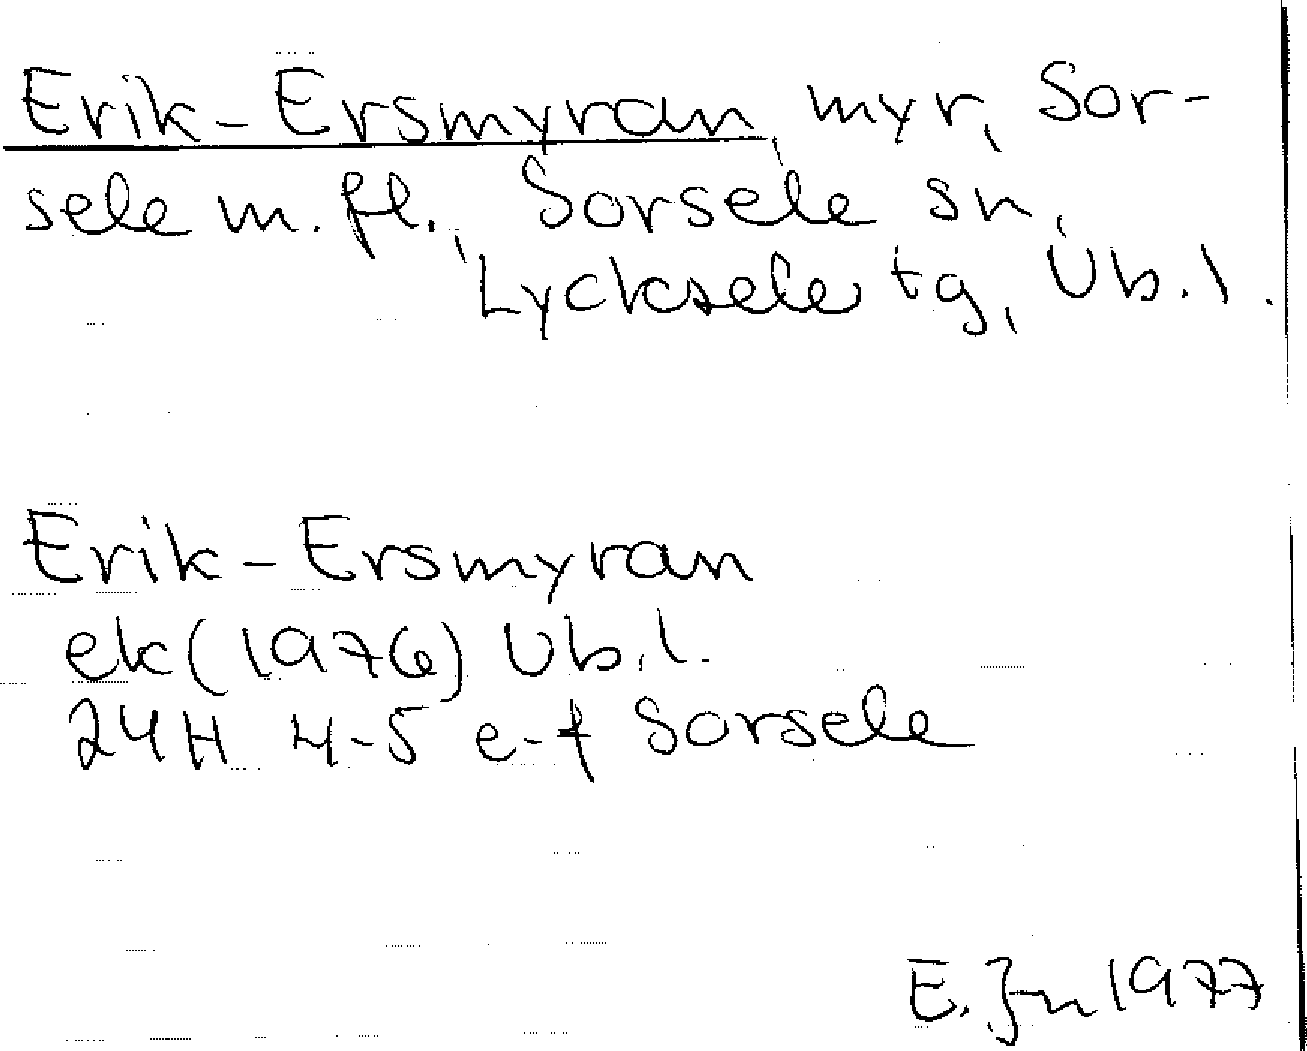 Erik-Ersmyran, myr, Sor-
sele m. fl., Sorsele sn,
Lycksele tg, Vb. l.
Erik-Ersmyran
ek (1976) Vb. l.
24H 4-5 e-f Sorsele
E. Jn 1977